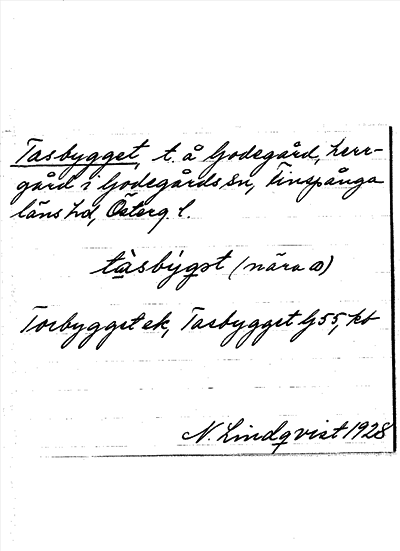 Tasbygget, t. å Godegård, herr-
gård i Godegårds sn, Finspånga
läns hd, Österg. l.
tàsbýgət (nära ɷ)
Torbygget ek, Tasbygget G55, kb
N. Lindqvist 1928